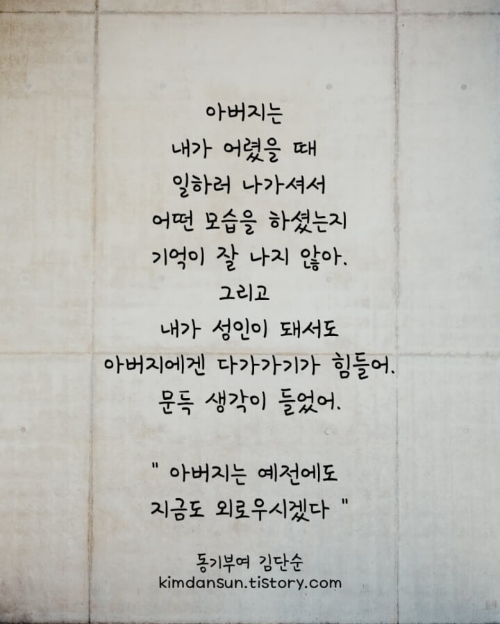 아버지는
내가 어렸을 때
일하러 나가셔서
어떤 모습을 하셨는지
기억이 잘 나지 않아.
그리고
내가 성인이 돼서도
아버지에겐 다가가기가 힘들어.
문득 생각이 들었어.
" 아버지는 예전에도
지금도 외로우시겠다 "
동기부여 김단순
kimdansun.tistory.com